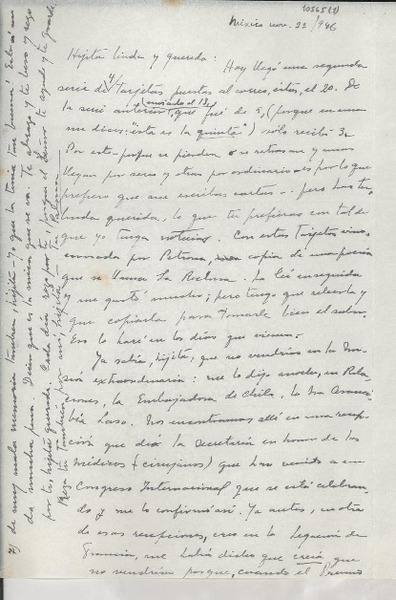 10565(1)
México nov. 21/946
Hijita linda y querida: Hoy llegó una segunda
serie de 4/ tarjetas puestas al correo, éstas, el 20. De
la serie anterior, (enviada el 13) que fué de 5, (porque en una
me dices: "ésta es la quinta") sólo recibí 3.
Por esto - porque se pierden o se retrasan y unas
llegan por aereo y otras por ordinario - es por lo que
prefiero que me escribas cartas - pero haz tú,
linda querida, lo que tú prefieras con tal de
que yo tenga noticias. Con estas tarjetas vino,
enviada por Palma, una copia de una poesía
que se llama La Reclusa. La leí enseguida
y me gustó mucho; pero tengo que releerla y
que copiarla para tomarle bien el sabor.
Eso lo haré en los días que vienen.
Ya sabía, hijita, que no vendrías en la mi-
sión extraordinaria: me lo dijo anoche, en Rela-
ciones, la Embajadora de Chile, la
Laso. Nos encontramos allí en una recep-
ción que dió la secretaría en honor de los
médicos (cirujanos) que han venido a un
Congreso Internacional que se está celebran-
do y me lo confirmó así. Ya antes, en otra
de esas recepciones, creo en la Legación de
Francia, me había dicho que creía que
no vendrías porque, cuando el Premio
7) de muy mala memoria tambien, hijita. Ya que la tuya era buena! Esto me
da mucha pena. Dicen que es la mía
Te abrazo y te beso y rezo
por ti, hijita querida. Cada día rezo por ti, porque el Señor te ayude y te guarde.
Reza tú tambien por mí, hijita. Palma